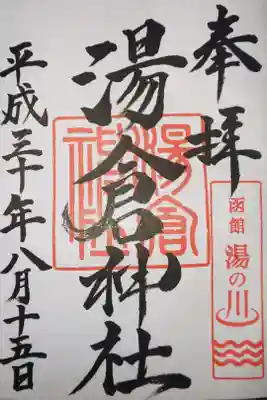 奉拝
湯倉神社
湯倉神社
函館
湯の川
平成三十年八月十五日